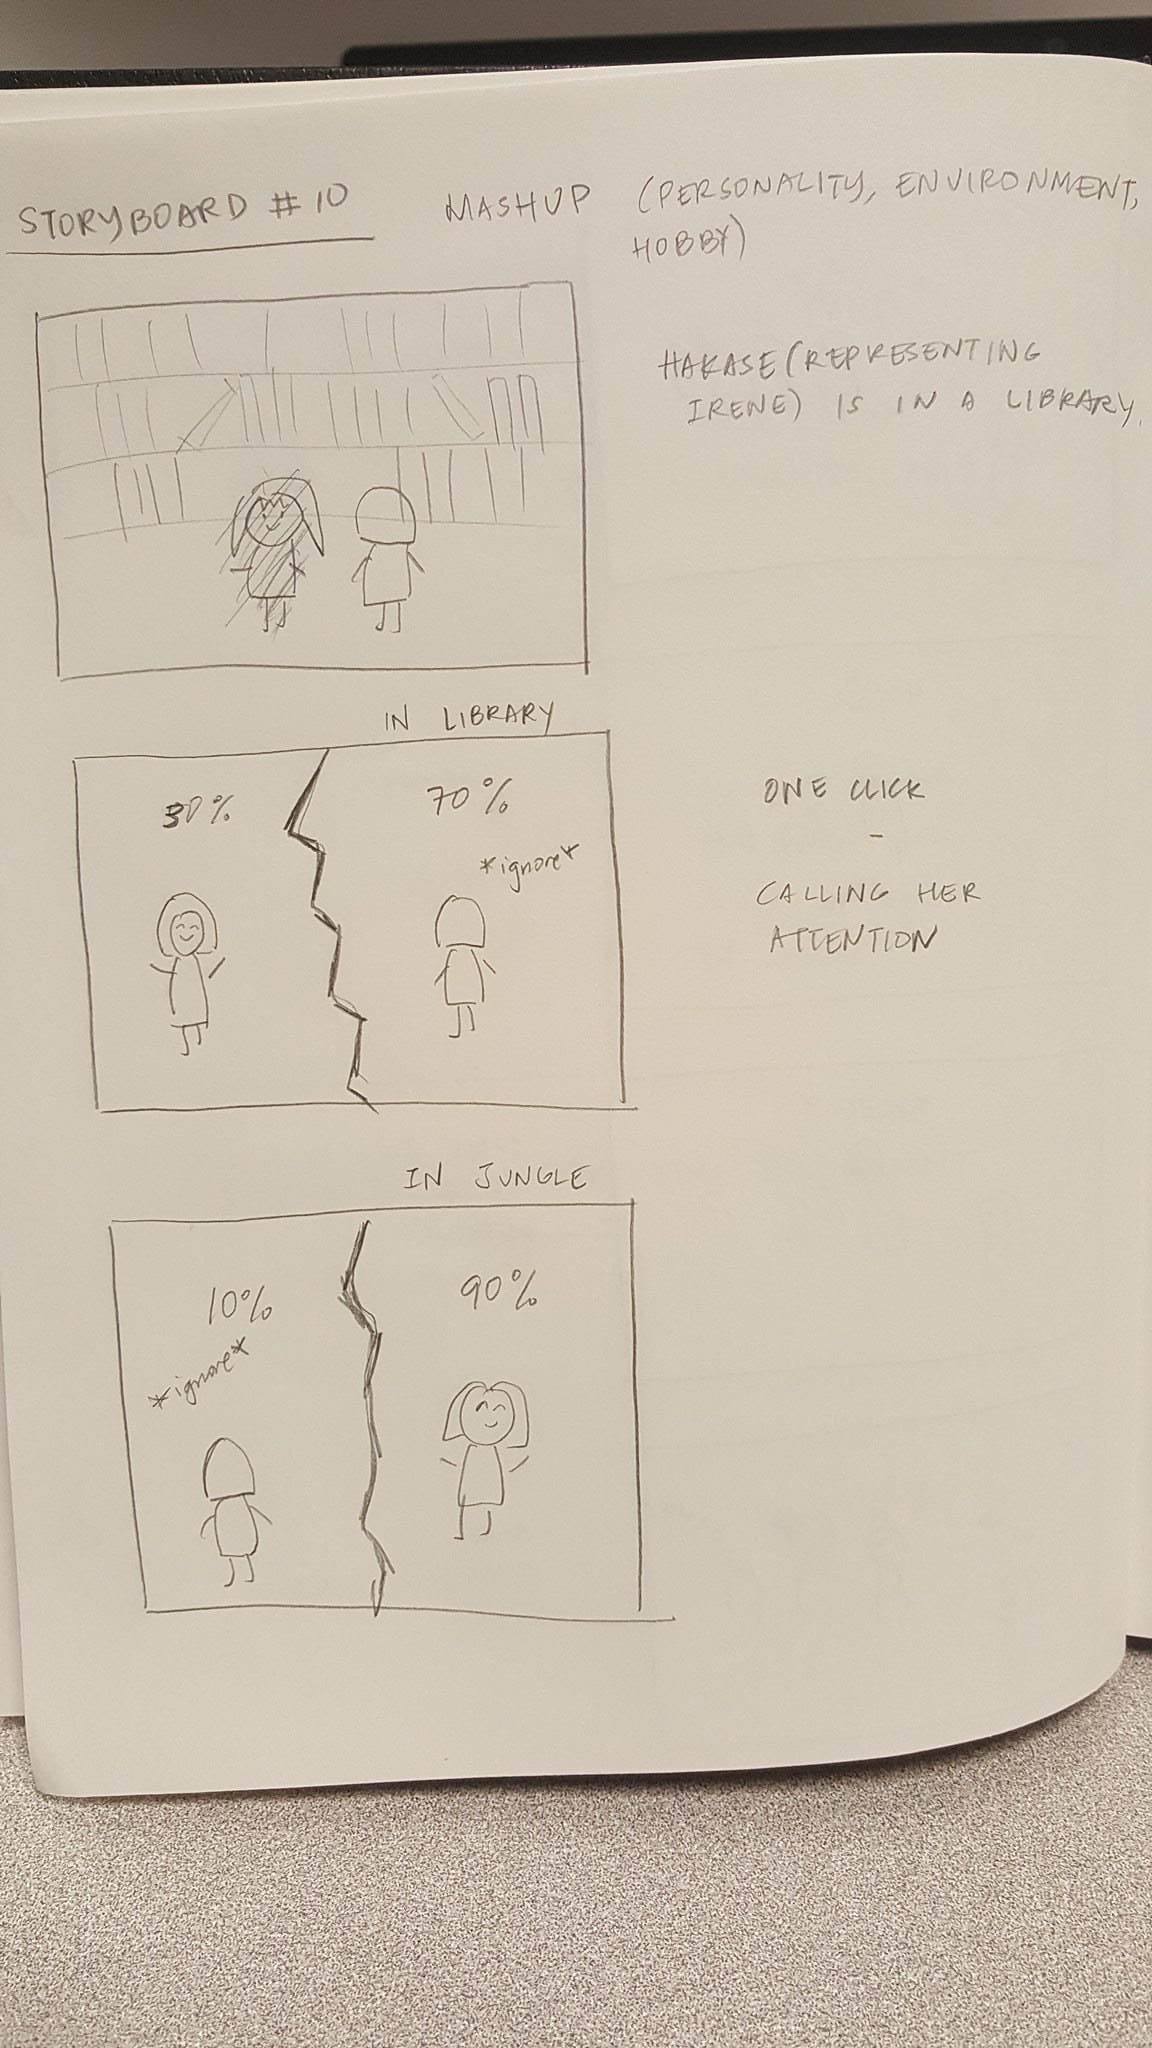 STORYBOARD #10
MASHUP (PERSONALITY, ENVIRONMENT,
HOBBY)
HAKASE (REPRESENTING
IRENE) IS IN A LIBRARY.
IN LIBRARY
30%
70%
*ignore*
ONE CLICK
-
CALLING HER
ATTENTION
IN JUNGLE
10%
*ignore*
90%